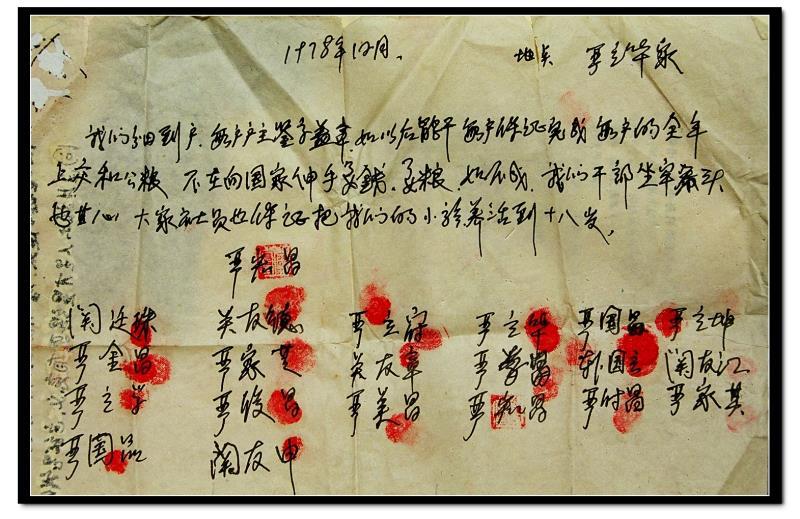 1978年12月.
地点 严立华家
我们分田到户.每户户主签字盖章.如以后能干每户保证完成每户的全年
上交和公粮 不在向国家伸手要钱.要粮.如不成.我们干部坐牢杀头
也甘心 大家社员也保证把我们的小孩养活到十八岁.
严宏昌
关廷珠 关友德 严立符 严立华 严国昌 严立坤
严金昌 严家芝 关友章 严学昌 韩国云 关友江
严立学 严俊昌 严美昌 严宏昌 严付昌 严家其
严国品 关友申